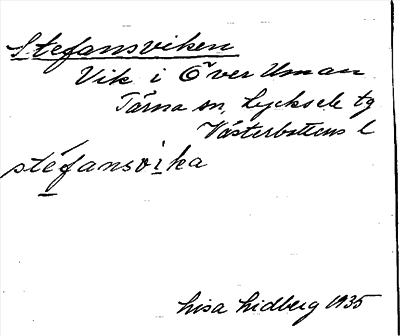 Stefansviken
Vik i Över Uman
Tärna sn, Lycksele tg
Västerbottens l
stéfansvika
Lisa Lidberg 1935